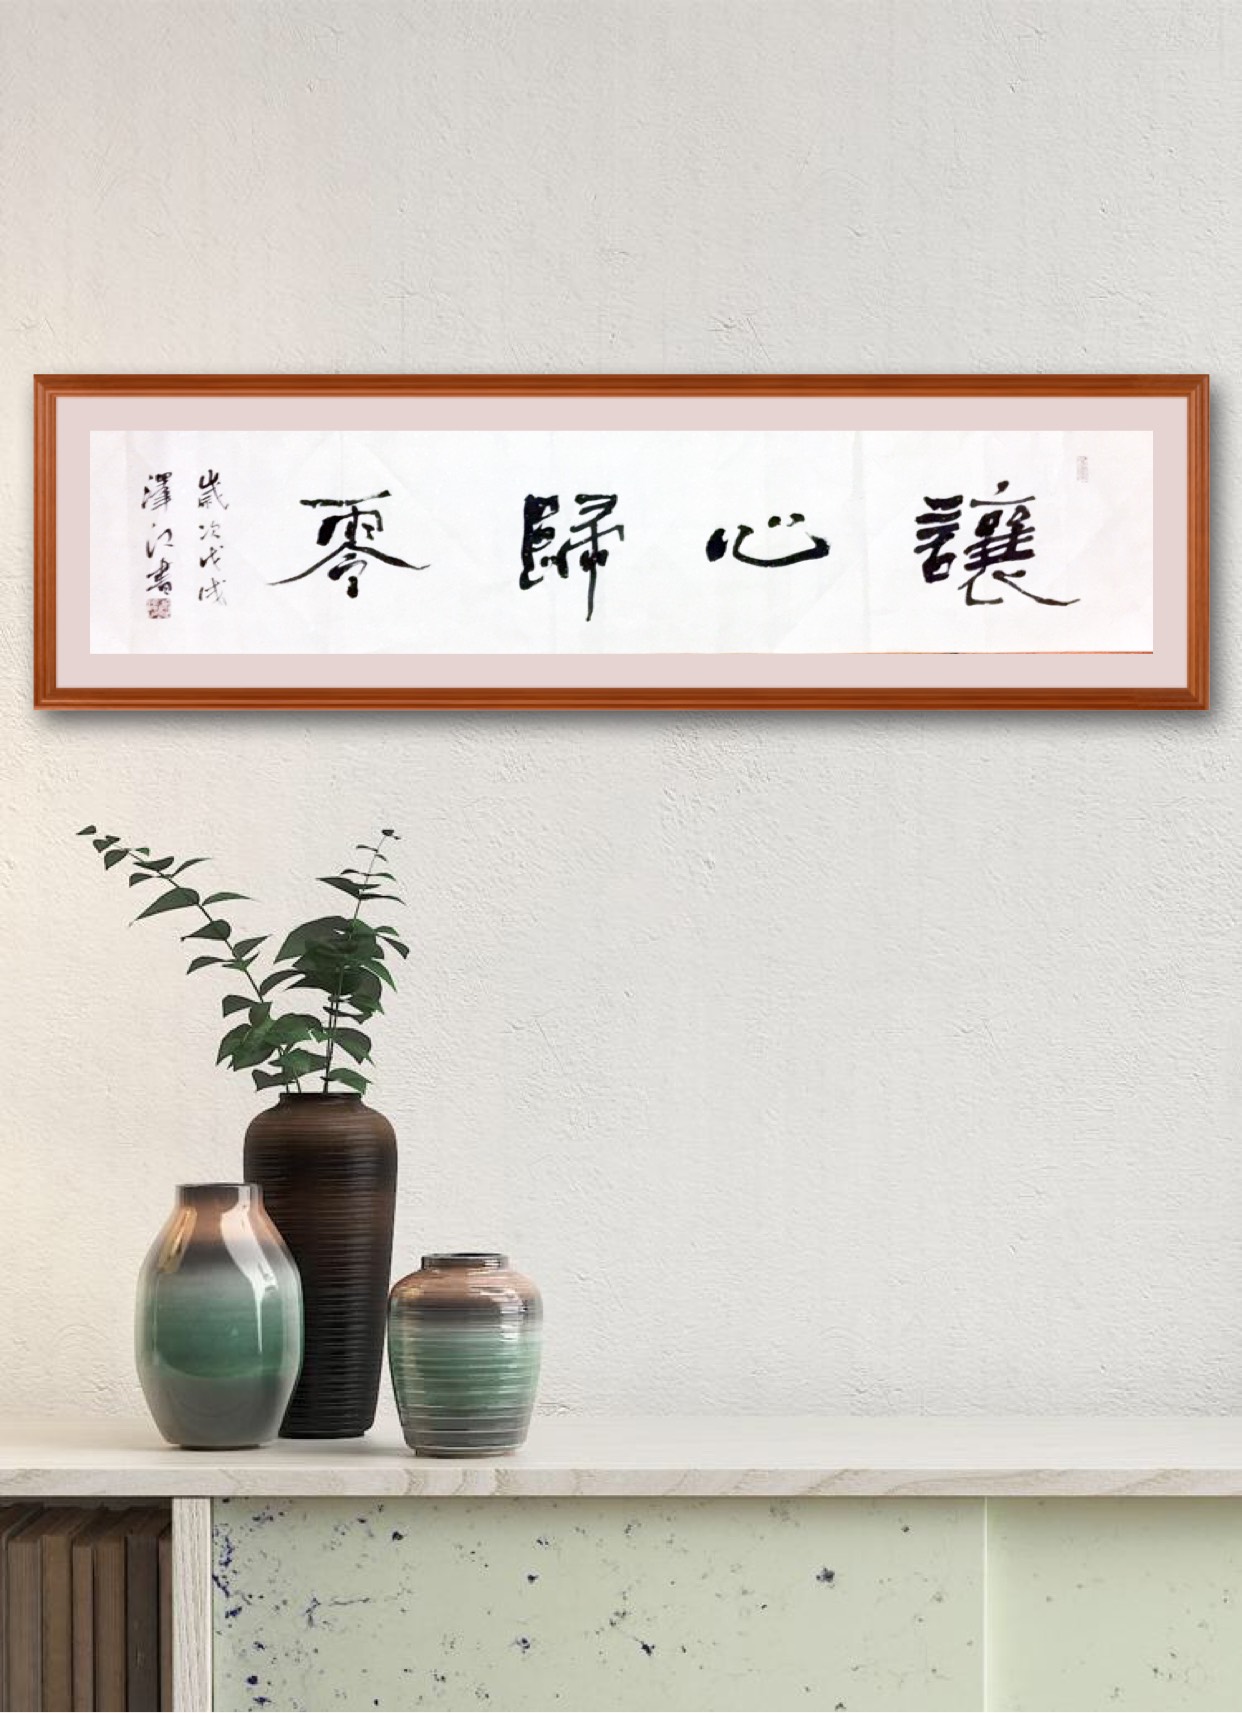 讓心歸零
歲次戊戌
澤江書